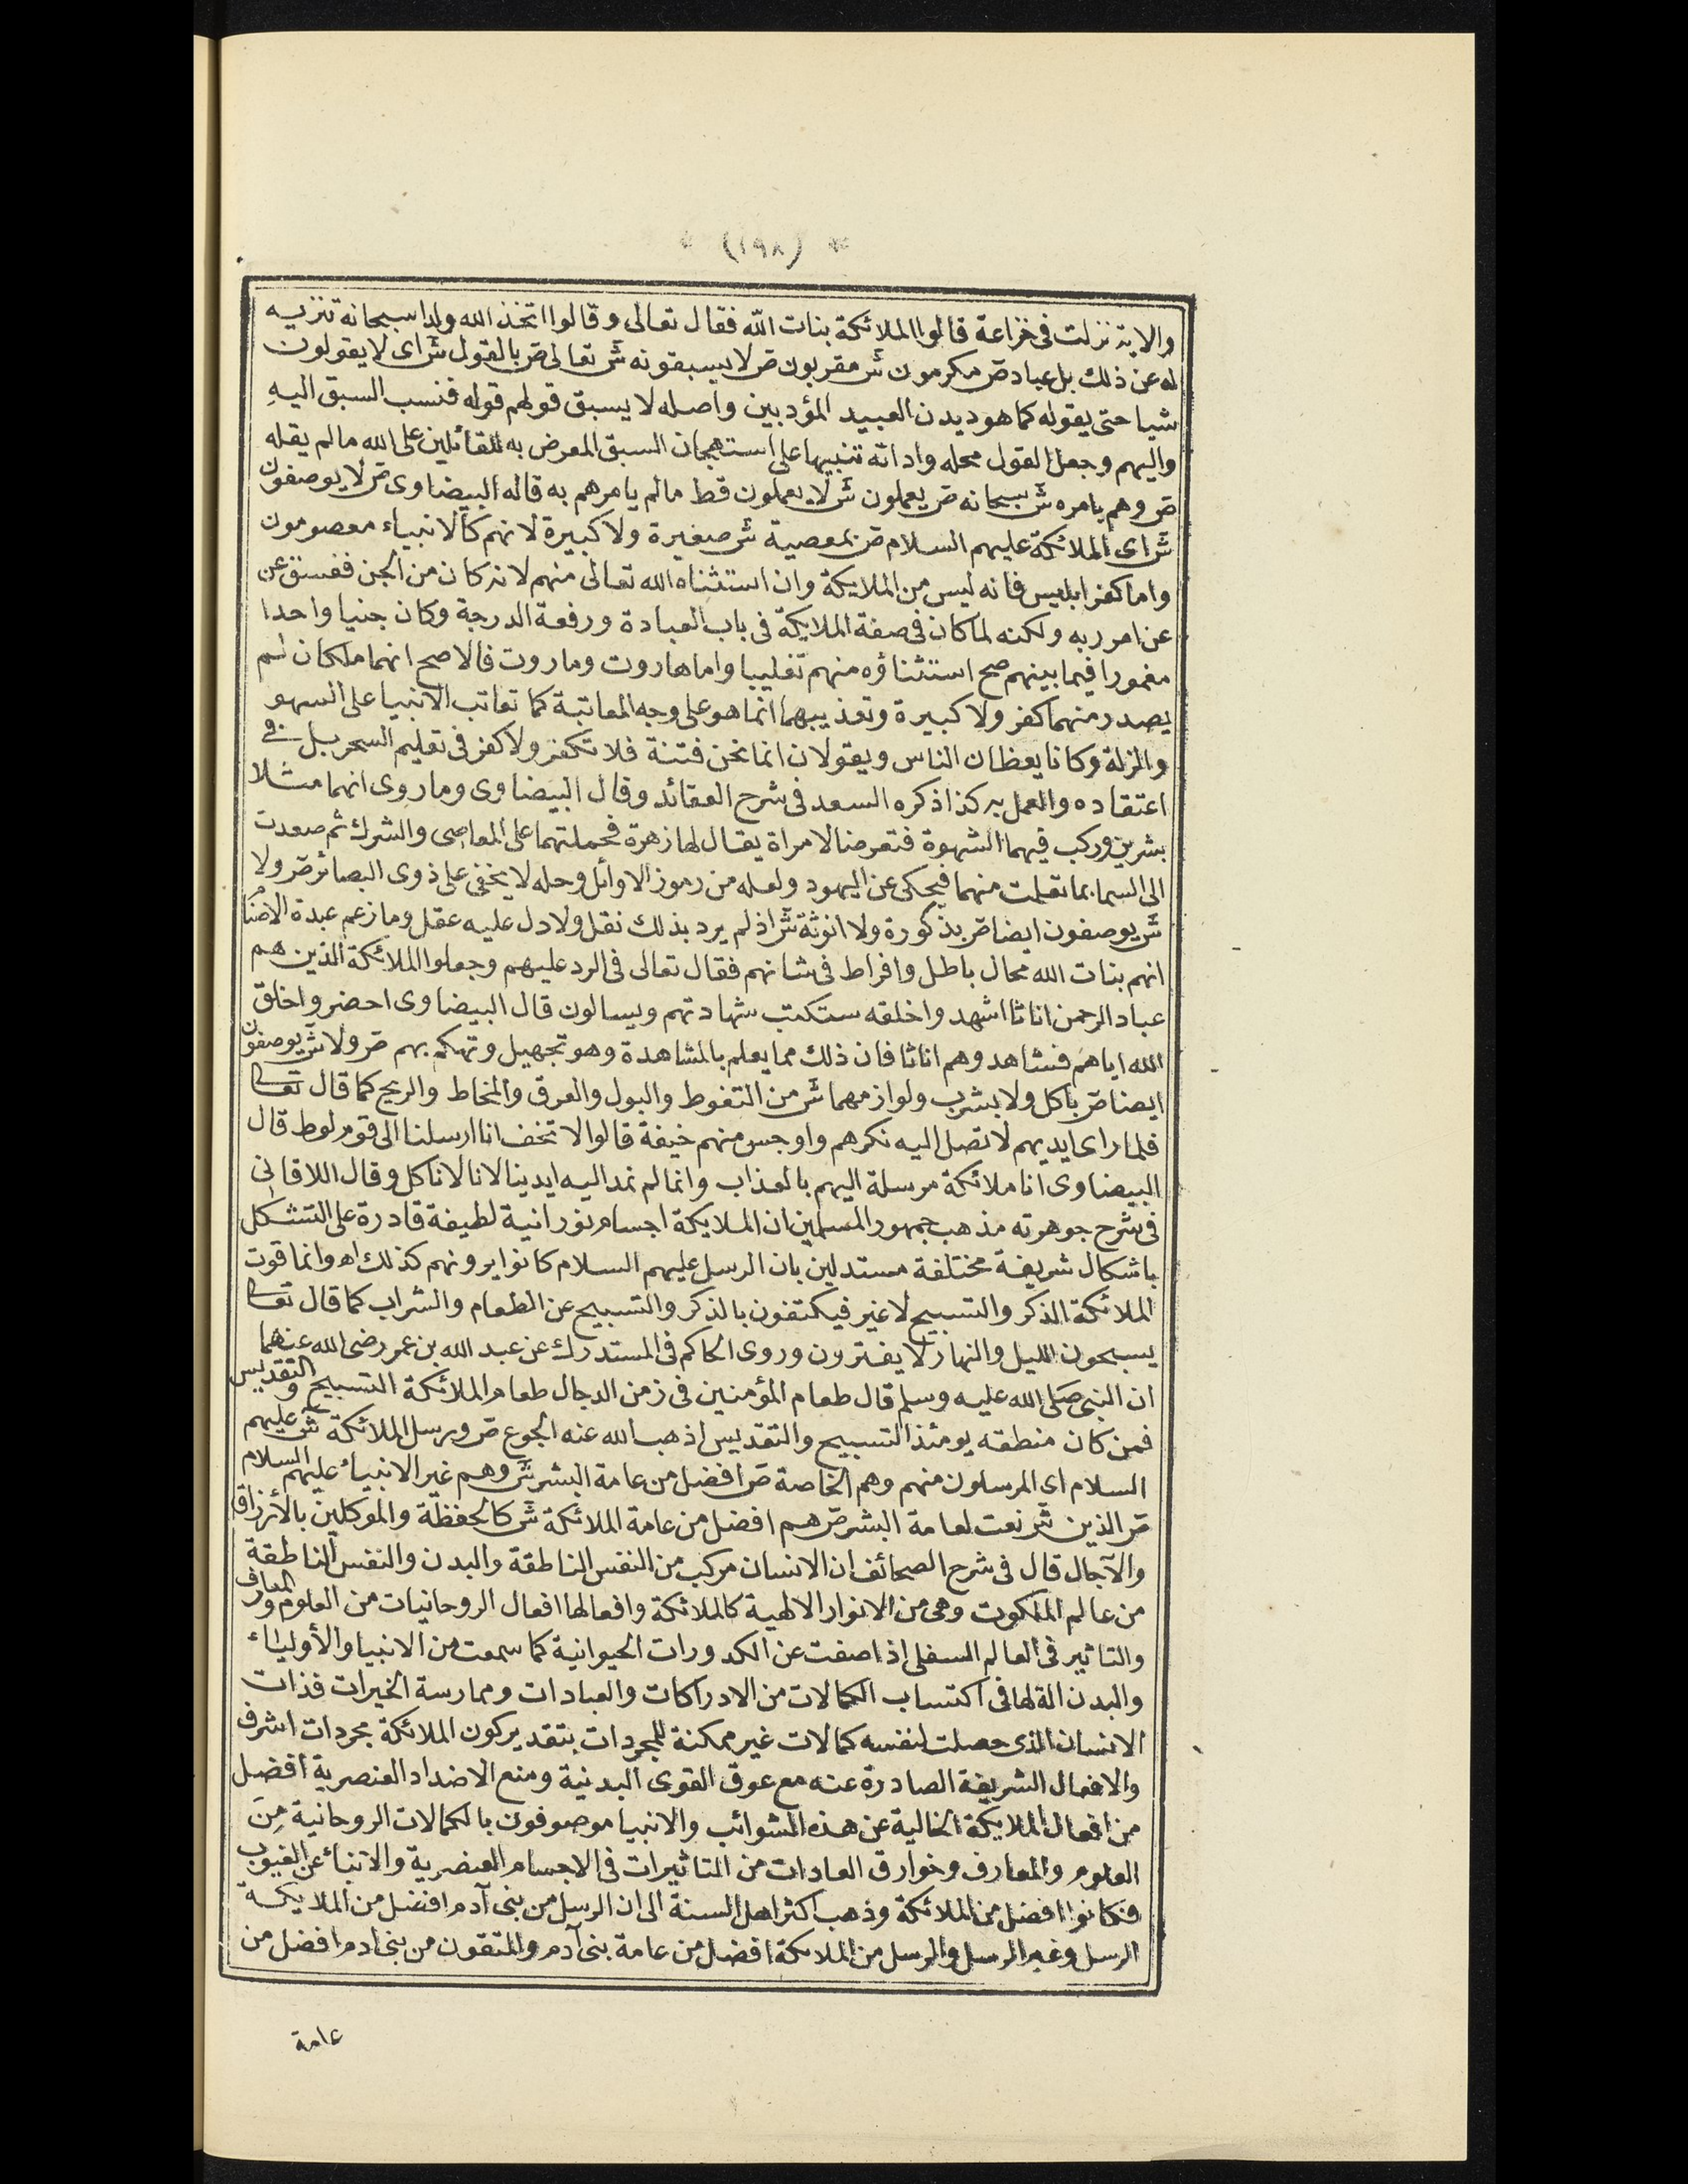 * (١٩٨) *
والاية نزلت فى خزاعة قالوا الملائكة بنات الله فقال تعالى وقالوا اتخذ الله ولدا سبحانه تنزيه
له عن ذلك بل عباد ص مكرمون ش مقربون ص لا يسبقونه ش تعالى ص بالقول ش اى لا يقولون
شيا حتى يقوله كما هو ديدن العبيد المؤدبين واصله لا يسبق قولهم قوله فنسب السبق اليه
واليهم وجعل القول محله واداته تنبيها على استهجان السبق المعرض به للقائلين على الله مالم يقله
ص وهم بامره ش سبحانه ص يعملون ش لا يعملون قط مالم يامرهم به قاله البيضاوى ص لا يوصفون
ش اى الملائكة عليهم السلام ص بمعصية ش صغيرة ولا كبيرة لانهم كالانبياء معصومون
واما كفر ابليس فانه ليس من الملايكة وان استثناه الله تعالى منهم لانه كان من الجن ففسق عن
عن امر ربه ولكنه لما كان فى صفة الملايكة فى باب العبادة ورفعة الدرجة وكان جنيا واحدا
مغمورا فيما بينهم صح استثناؤه منهم تغليبا واما هاروت وماروت فالاصح انهما ملكان لم
يصدر منهما كفر ولا كبيرة وتعذيبهما انما هو على وجه المعاتبة كما تعاتب الانبيا على السهو
والزلة وكانا يعظان الناس ويقولان انما نحن فتنة فلا تكفر ولا كفر فى تعليم السحر بل فى
اعتقاده والعمل به كذا ذكره السعد فى شرح العقائد وقال البيضاوى وماروى انهما مثلا
بشرين وركب فيهما الشهوة فتعرضا لامراة يقال لها زهرة فحملتهما على المعاصى والشرك ثم صعدت
الى السما بما تعلمت منهما فيحكى عن اليهود ولعله من رموز الاوائل وحله لا يخفى على ذوى البصائر ص ولا
ش يوصفون ايضا ص بذكورة ولا انوثة ش اذ لم يرد بذلك نقل ولا دل عليه عقل وما زعم عبدة الاصنا
انهم بنات الله محال باطل وافراط فى شانهم فقال تعالى فى الرد عليهم وجعلوا الملائكة الذين هم
عباد الرحمن اناثا اشهدوا خلقه ستكتب شهادتهم ويسالون قال البيضاوى احضروا خلق
الله اياهم فشاهدوهم اناثا فان ذلك مما يعلم بالمشاهدة وهو تجهيل وتهكم بهم ص ولا ش يوصفون
ايضا ص باكل ولا بشرب ولوازمهما ش من التغوط والبول والعرق والمخاط والريح كما قال تعا
فلما راى ايديهم لا تصل اليه نكرهم واوجس منهم خيفة قالوا لا تخف انا ارسلنا الى قوم لوط قال
البيضاوى انا ملائكة مرسلة اليهم بالعذاب وانما لم نمد اليه ايدينا لانا لا ناكل وقال اللاقانى
فى شرح جوهرته مذهب جمهور المسلمين ان الملايكة اجسام نورانية لطيفة قادرة على التشكل
باشكال شريفة مختلفة مستدلين بان الرسل عليهم السلام كانوا يرونهم كذلك اه وانما قوت
الملائكة الذكر والتسبيح لا غير فيكتفون بالذكر والتسبيح عن الطعام والشراب كما قال تعا
يسبحون الليل والنهار لا يفترون وروى الحاكم فى المستدرك عن عبد الله بن عمر رضى الله عنهما
ان النبى صلى الله عليه وسلم قال طعام المؤمنين فى زمن الدجال طعام الملائكة التسبيح والتقديس
فمن كان منطقه يومئذ التسبيح والتقديس اذهب الله عنه الجوع ص ورسل الملائكة ش عليهم
السلام اى المرسلون منهم وهم الخاصة ص افضل من عامة البشر ش وهم غير الانبياء عليهم السلام
ص الذين ش نعت لعامة البشر ص هم افضل من عامة الملائكة ش كالحفظة والموكلين بالأرزاق
والآجال قال فى شرح الصحائف ان الانسان مركب من النفس الناطقة والبدن والنفس الناطقة
من عالم الملكوت وهى من الانوار الالهية كالملائكة وافعالها افعال الروحانيات من العلوم والمعارف
والتاثير فى العالم السفلى اذا صفت عن الكدورات الحيوانية كما سمعت من الانبيا والأولياء
والبدن الة لها فى اكتساب الكمالات من الادراكات والعبادات وممارسة الخيرات فذات
الانسان الذى حصلت لنفسه كمالات غير ممكنة للمجردات بتقدير كون الملائكة مجردات اشرف
والافعال الشريفة الصادرة عنه مع عوق القوى البدنية ومنع الاضداد العنصرية افضل
من افعال الملايكة الخالية عن هذه الشوائب والانبيا موصوفون بالكمالات الروحانية مِنَ
العلوم والمعارف وخوارق العادات من التاثيرات فى الاجسام العنصرية والانباء عن الغيوب
فكانوا افضل من الملائكة وذهب اكثر اهل السنة الى ان الرسل من بنى آدم افضل من الملايكة
الرسل وغير الرسل والرسل من الملائكة افضل من عامة بنى آدم والمتقون من بنى ادم افضل من
عامة